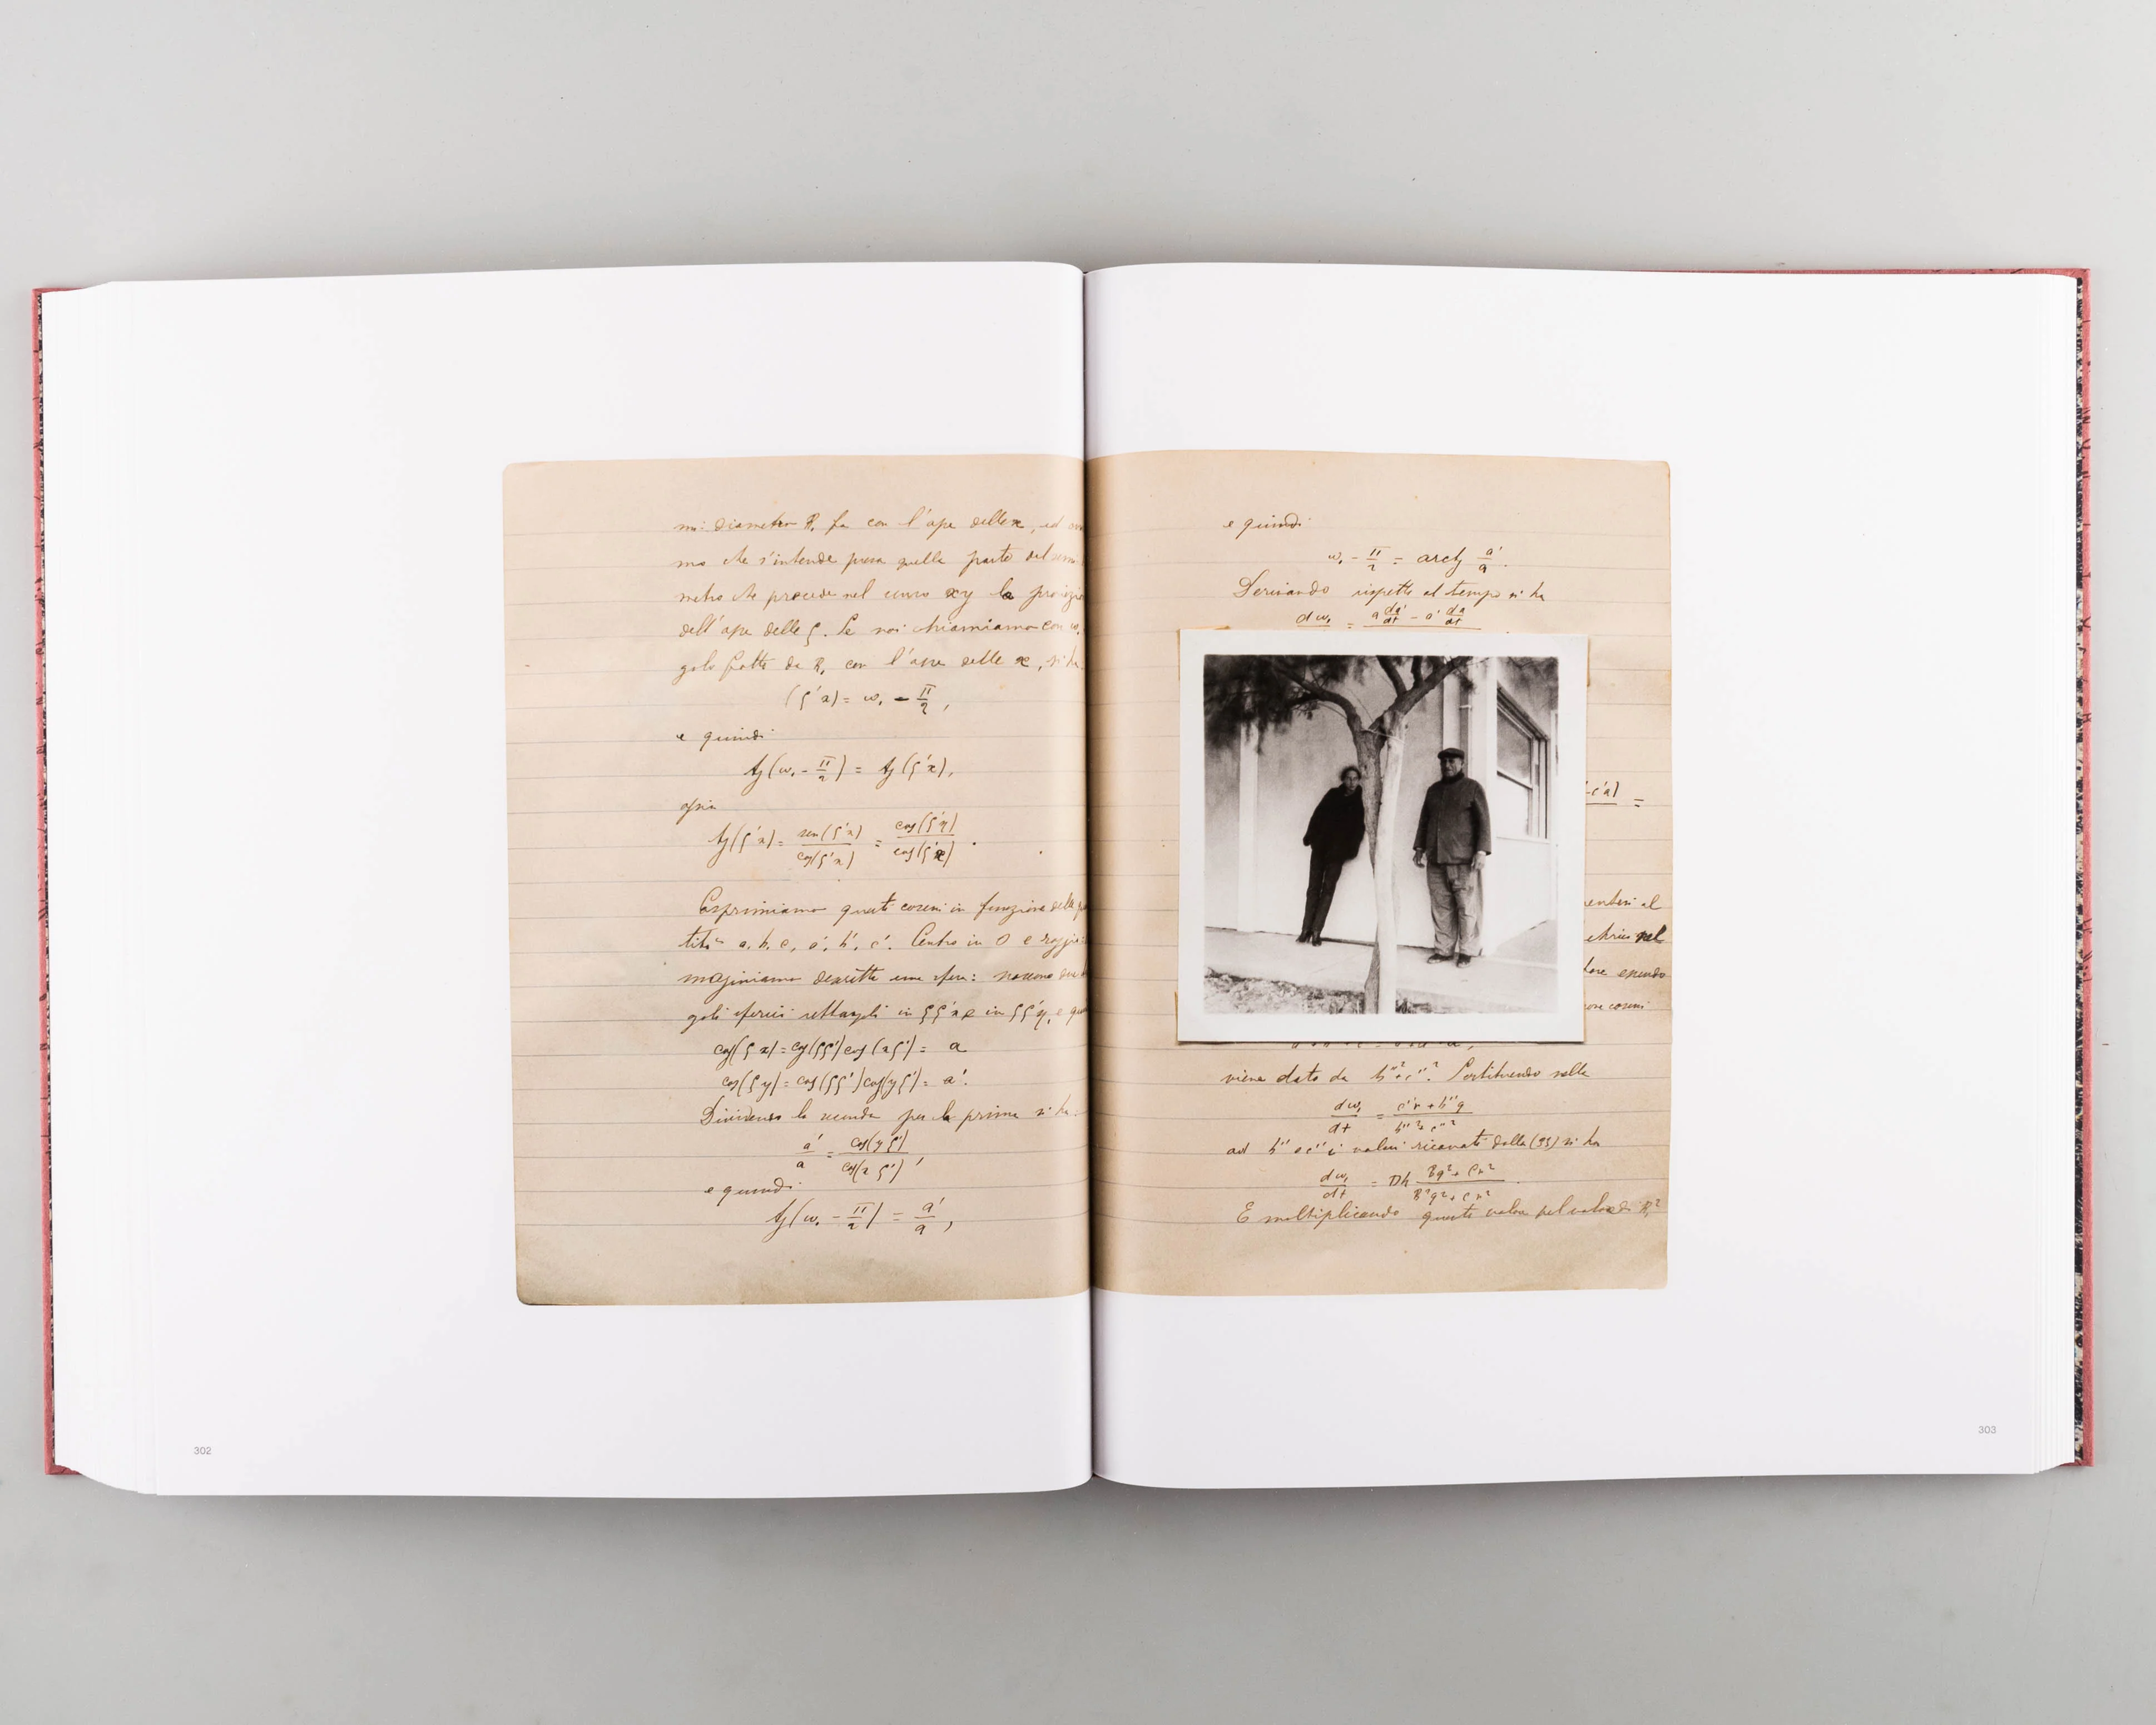 mi-diametro R, fa con l'asse delle x, ed
mo che s'intende presa quella parte del semi
metro che procede nel senso xy la proiezio
dell'asse delle ζ. Se noi chiamiamo con ω,
golo fatto da R, con l'asse delle x, si ha
(ζ'x) = ω, - π/2,
e quindi
tg(ω, - π/2) = tg(ζ'x),
ossia
tg(ζ'x) = sen(ζ'x)/cos(ζ'x) = cos(ζ'y)/cos(ζ'x).
Esprimiamo questi coseni in funzione delle
tità a, b, c, a', b', c'. Centro in O e raggio
maginiamo descritta una sfera: nascono due
goli sferici rettangoli in ζζ'x e in ζζ'y, e
cos(ζx) = cos(ζζ')cos(xζ') = a
cos(ζy) = cos(ζζ')cos(yζ') = a'.
Dividendo la seconda per la prima si ha:
a'/a = cos(yζ')/cos(xζ'),
e quindi
tg(ω, - π/2) = a'/a,
302
e quindi
ω, - π/2 = arctg a'/a.
Derivando rispetto al tempo si ha
dω, = a da'/dt - a' da/dt
c'a) =
al
nel
essendo
coseni
viene dato da b''² + c''². Sostituendo nella
dω,/dt = c''r + b''q / b''² + c''²
ad b'' e c'' i valori ricavati dalla (33) si ha
dω,/dt = Dh Bq² + Cr² / B²q² + C²r².
E moltiplicando questo valore pel valore di R,²
303